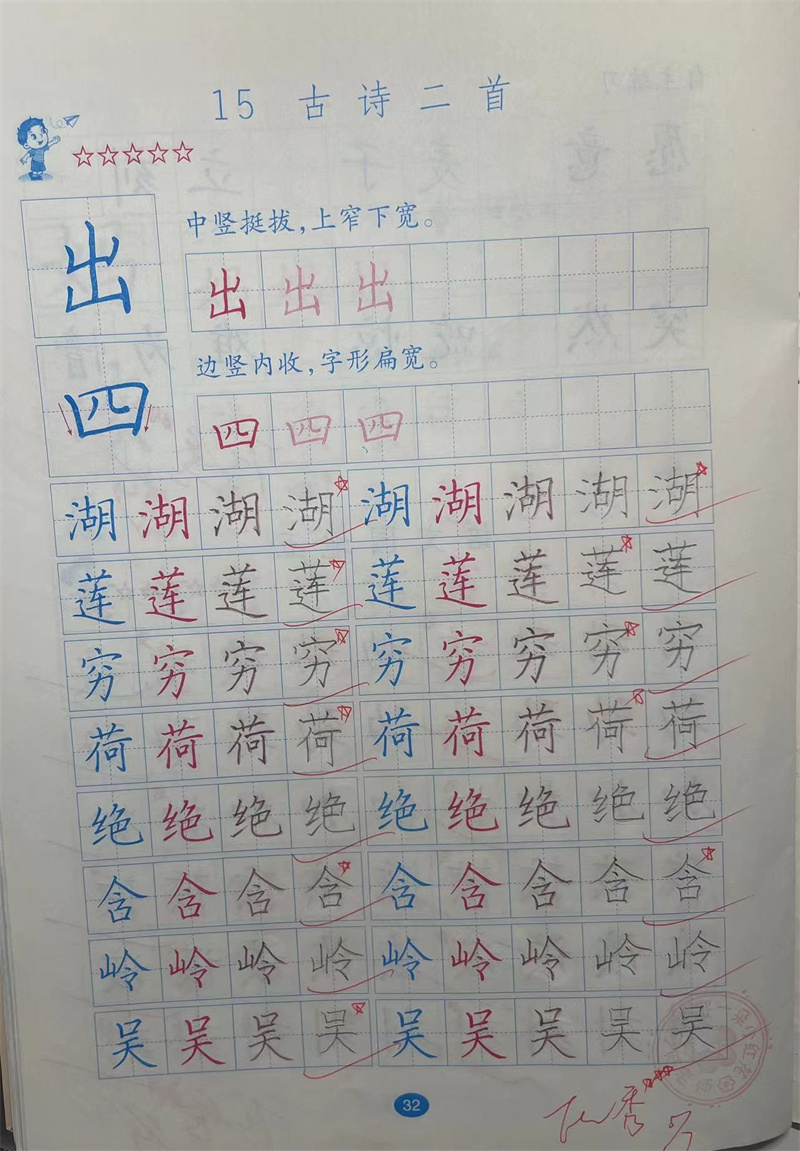 15 古诗二首
中竖挺拔，上窄下宽。
出 出 出 出
边竖内收，字形扁宽。
四 四 四 四
湖 湖 湖 湖 湖 湖 湖 湖 湖
莲 莲 莲 莲 莲 莲 莲 莲 莲
穷 穷 穷 穷 穷 穷 穷 穷 穷
荷 荷 荷 荷 荷 荷 荷 荷 荷
绝 绝 绝 绝 绝 绝 绝 绝 绝
含 含 含 含 含 含 含 含 含
岭 岭 岭 岭 岭 岭 岭 岭 岭
吴 吴 吴 吴 吴 吴 吴 吴 吴
32
优秀